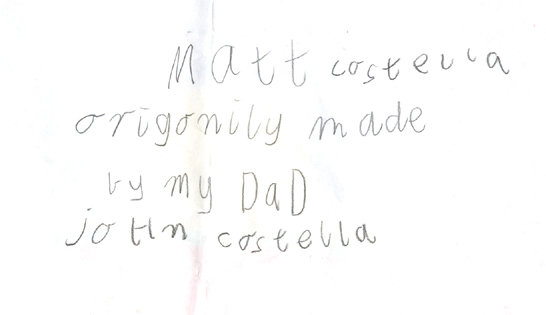 Matt costella
origonily made
by my DaD
joHn costella